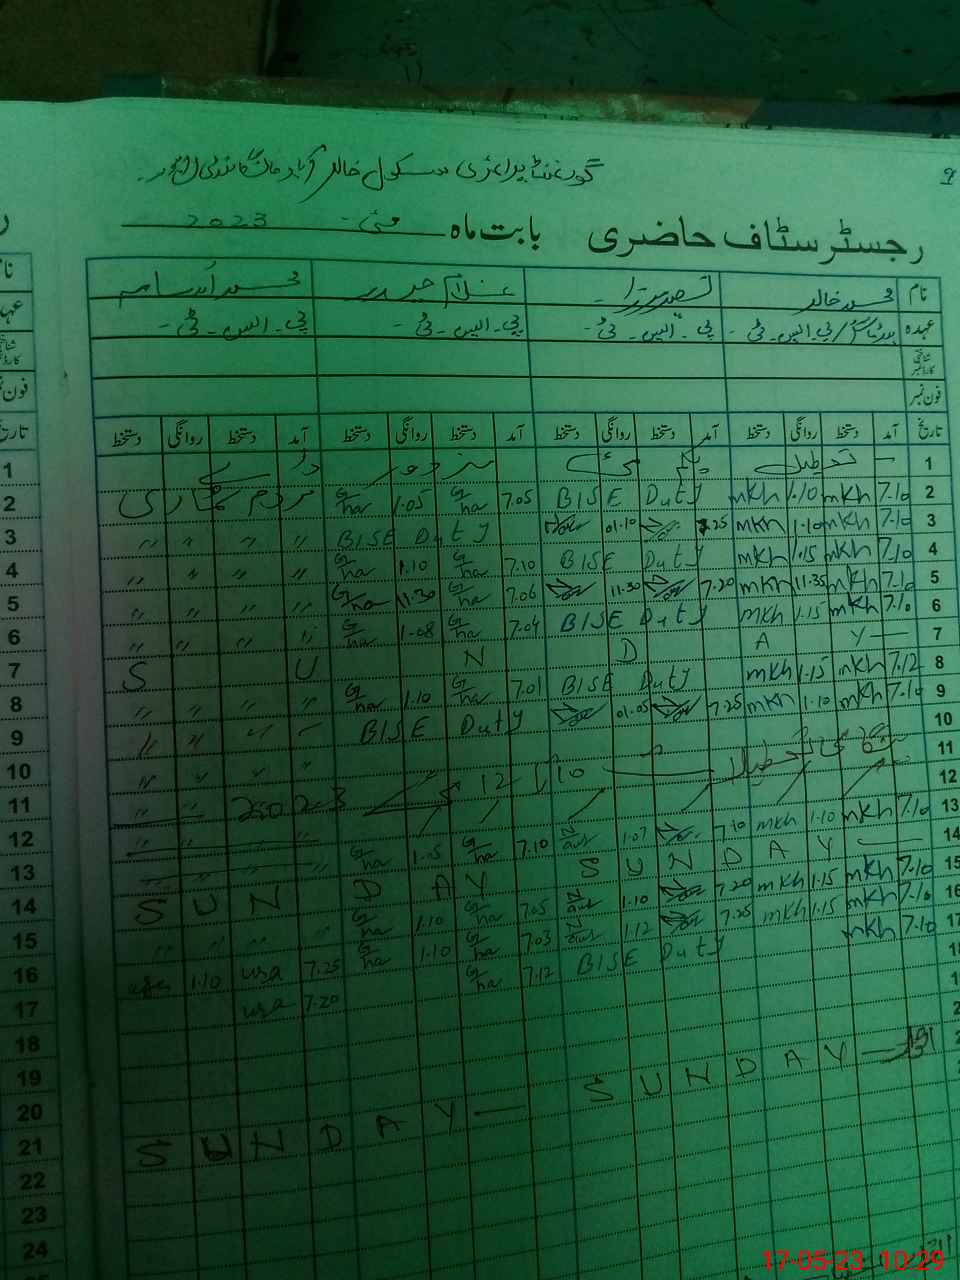 گورنمنٹ پرائمری سکول خالد آباد
رجسٹر سٹاف حاضری بابت ماہ مئی 2023
نام محمد خالد غلام حیدر محمد اُسامہ
عہدہ پی۔ایس۔ٹی پی۔ایس۔ٹی۔ پی۔ایس۔ٹی۔ پی۔ایس۔ٹی۔
شناختی کارڈ نمبر
فون نمبر
تاریخ آمد دستخط روانگی دستخط آمد دستخط روانگی دستخط آمد دستخط روانگی دستخط آمد دستخط روانگی دستخط
1 تعطیل یکم مئی مزدور ڈے
2 7.10 mkh 1.10 mkh BISE Duty 7.05 Gha 1.05 Gha مردم شماری
3 7.10 mkh 1.10 mkh 7.25 01.10 BISE Duty " " " "
4 7.10 mkh 1.15 mkh BISE Duty 7.10 Gha 1.10 Gha " " " "
5 7.10 mkh 11.35 mkh 7.20 11.30 7.06 Gha 11.30 Gha " " " "
6 7.10 mkh 1.15 mkh BISE Duty 7.04 Gha 1.08 Gha " " " "
7 S U N D A Y
8 7.12 mkh 1.15 mkh BISE Duty 7.01 Gha 1.10 Gha " " " "
9 7.10 mkh 1.10 mkh 7.25 01.05 BISE Duty " " " "
10 " " " "
11 تعطیل 10 تا 12 " "
12 " "
13 7.10 mkh 1.10 mkh 7.10 1.07 7.10 Gha 1.05 Gha " " " "
14 S U N D A Y S U N D A Y
15 7.10 mkh 1.15 mkh 7.20 1.10 7.05 Gha 1.10 Gha " " " "
16 7.10 mkh 1.15 mkh 7.25 1.12 7.03 Gha 1.10 Gha 7.25 usa 1.10 usa
17 7.10 mkh BISE Duty 7.12 Gha 7.20 usa
18
19
20
21 S U N D A Y S U N D A Y
22
23
24
17-05-23 10:29